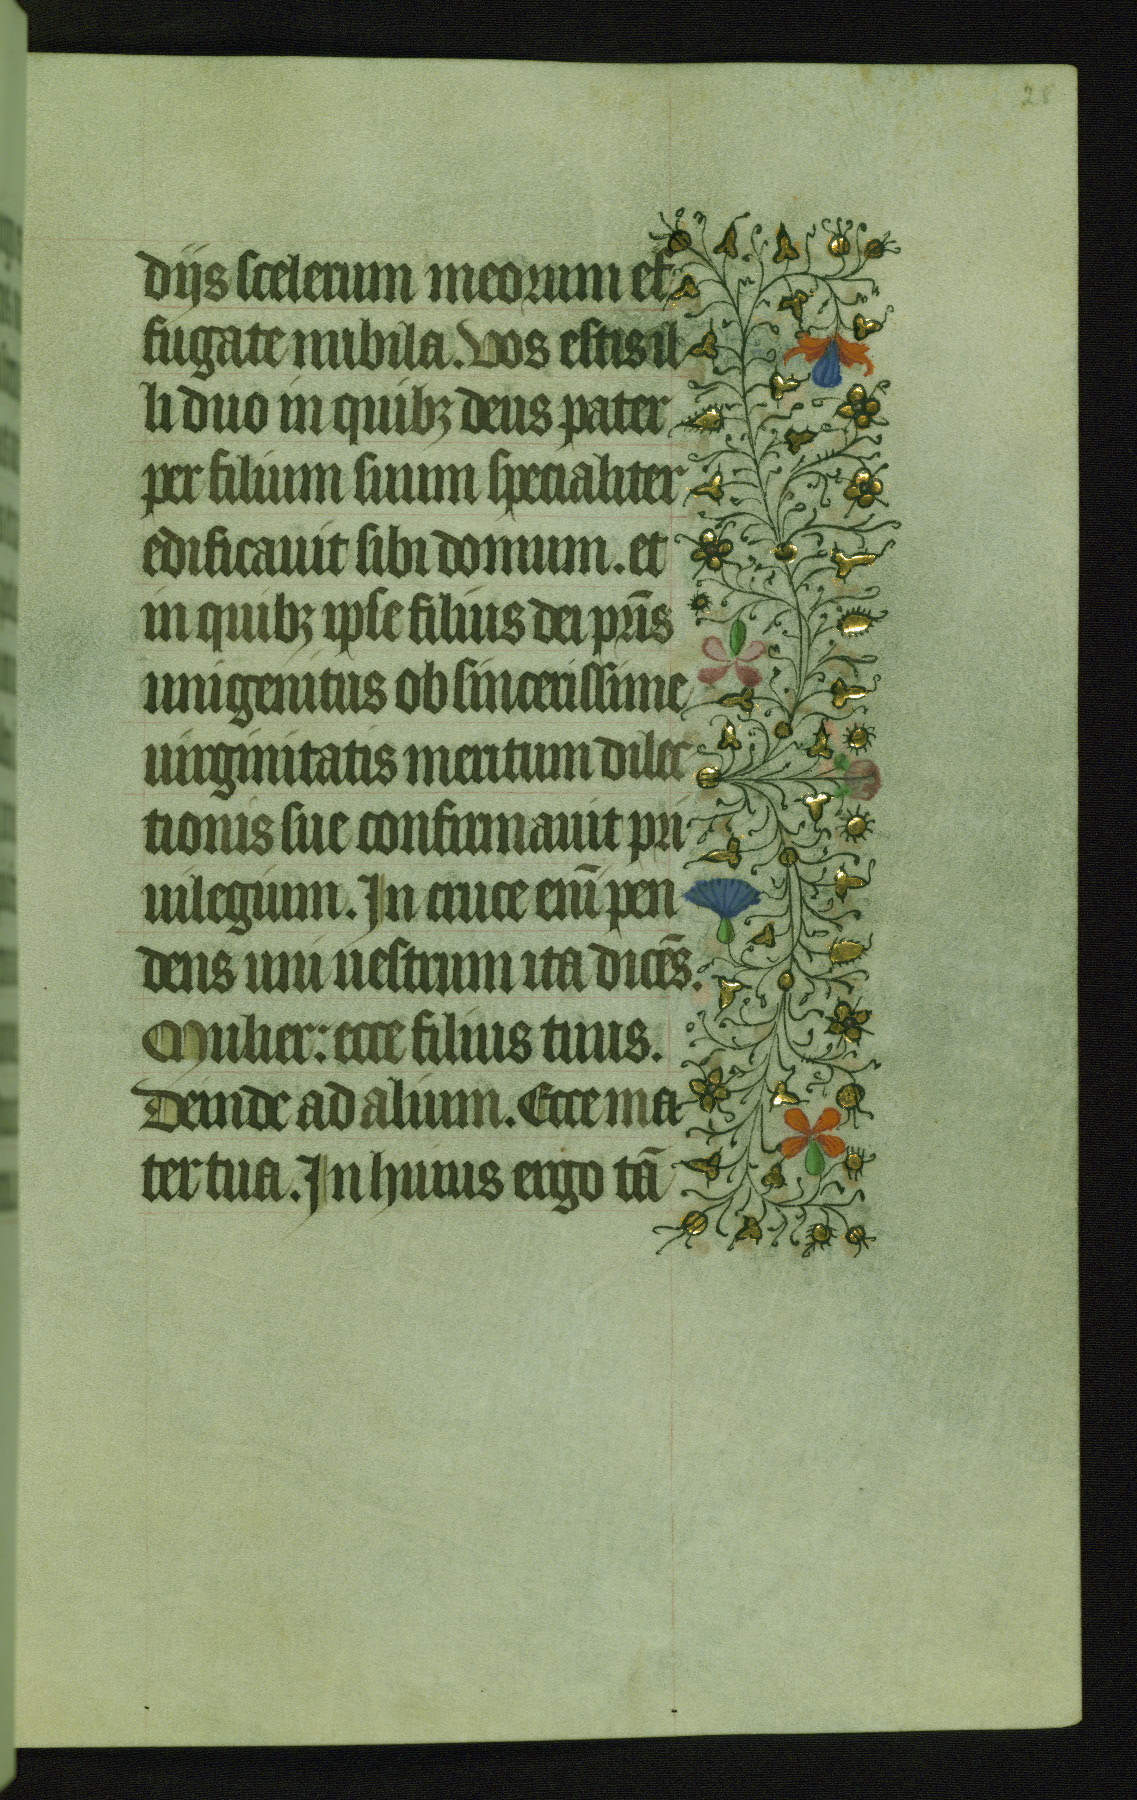 28
diis scelerum meorum et
fugate nubila. Vos estis il
li duo in quibꝫ deus pater
per filium suum specialiter
edificauit sibi domum. et
in quibꝫ ipse filius dei pr̄is
unigenitus ob sincerissime
uirginitatis meritum dilec
tionis sue confirmauit pri
uilegium. In cruce eni̅ pen
dens uni uestrum ita dice̅s.
Mulier: ecce filius tuus.
Deinde ad alium. Ecce ma
ter tua. In huius ergo ta̅